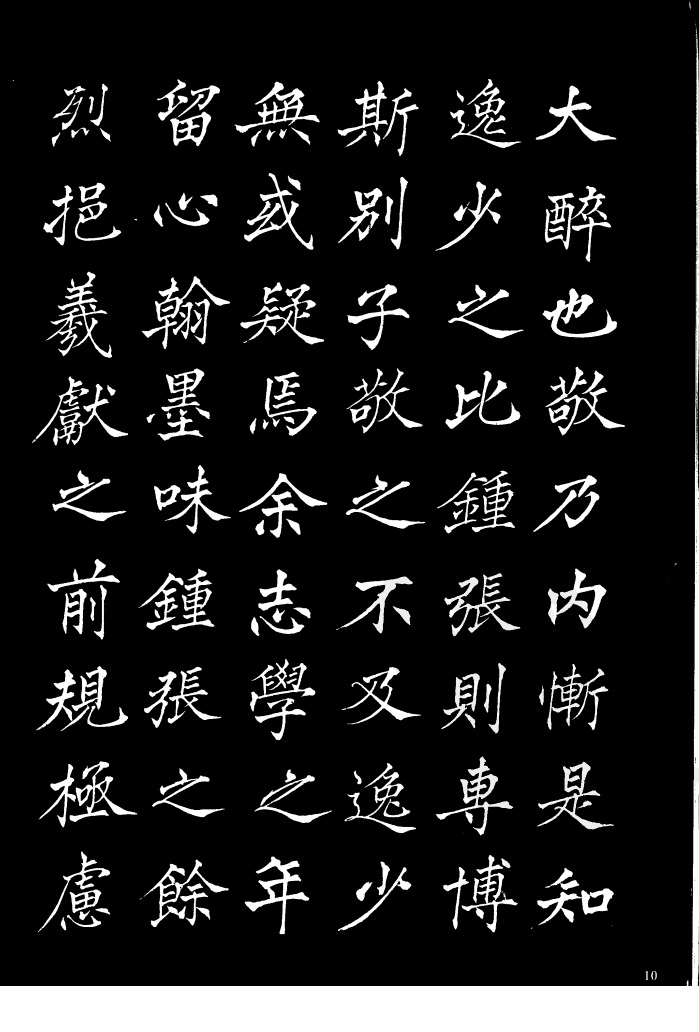 大醉也敬乃内慚是知
逸少之比鍾張則專博
斯别子敬之不及逸少
無或疑焉余志學之年
留心翰墨味鍾張之餘
烈挹羲獻之前規極慮
10